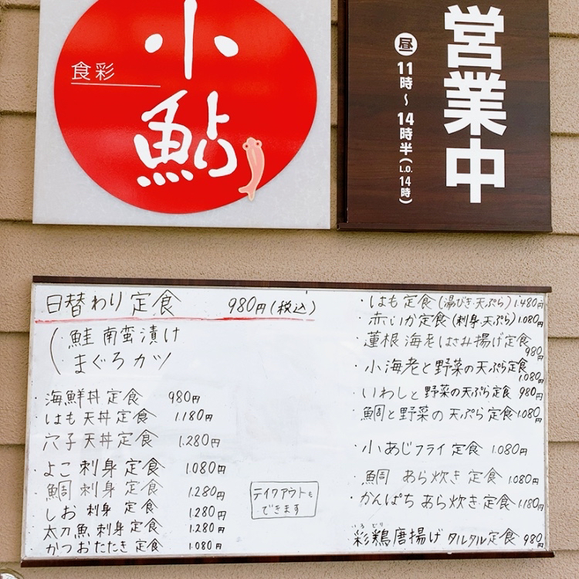 食彩
小
鮎
営業中
昼 11時～14時半(L.O.14時)
日替わり定食 980円(税込)
鮭南蛮漬け
まぐろカツ
・海鮮丼定食 980円
・はも天丼定食 1.180円
・穴子天丼定食 1.280円
・よこ刺身定食 1.080円
・鯛刺身定食 1.280円
・しお刺身定食 1.280円
・太刀魚刺身定食 1.280円
・かつおたたき定食 1.080円
テイクアウトも
できます
・はも定食(湯びき・天ぷら) 1.480円
・赤いか定食(刺身・天ぷら) 1.080円
・蓮根海老はさみ揚げ定食
980円
・小海老と野菜の天ぷら定食
1.080円
・いわしと野菜の天ぷら定食 980円
・鯛と野菜の天ぷら定食 1.080円
・小あじフライ定食 1.080円
・鯛あら炊き定食 1.080円
・かんぱちあら炊き定食 1.180円
・彩鶏唐揚げタルタル定食 980円